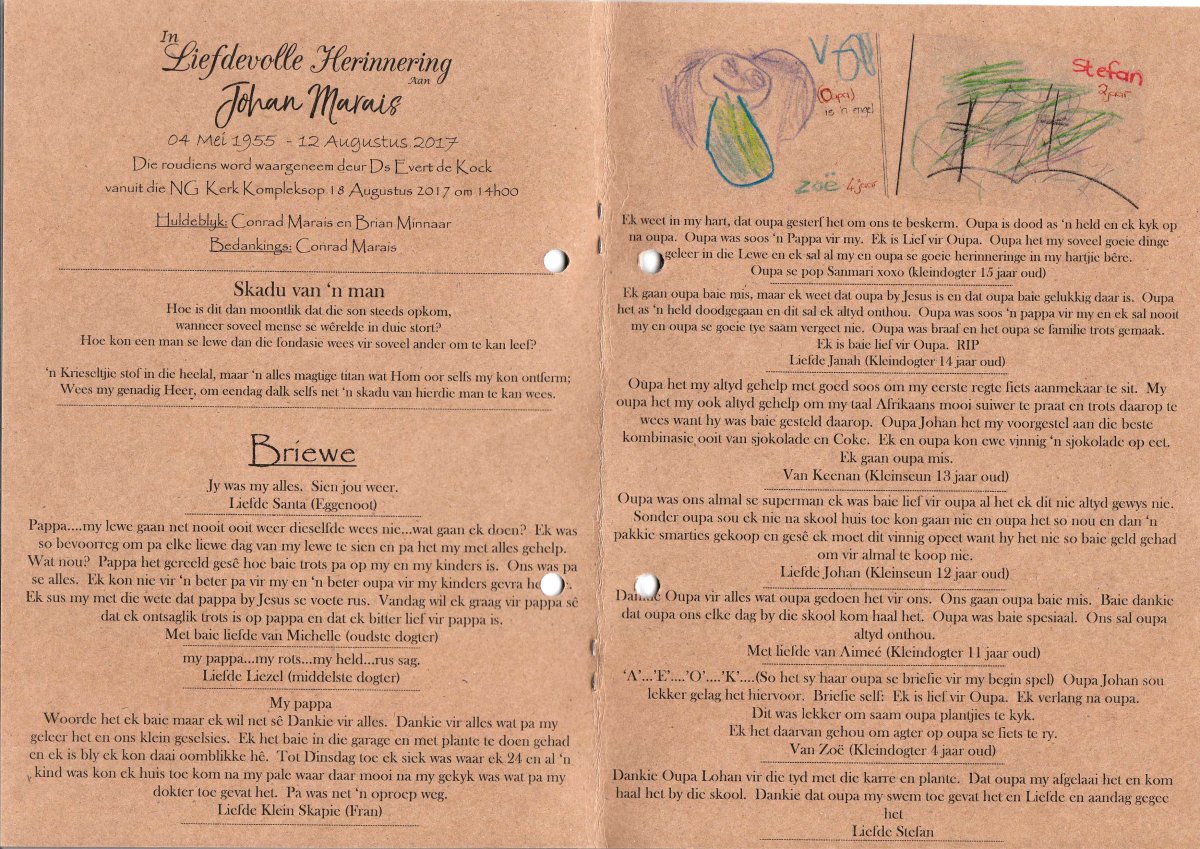 In
Liefdevolle Herinnering
Aan
Johan Marais
04 Mei 1955 - 12 Augustus 2017
Die roudiens word waargeneem deur Ds Evert de Kock
vanuit die NG Kerk Kompleksop 18 Augustus 2017 om 14h00
Huldeblyk: Conrad Marais en Brian Minnaar
Bedankings: Conrad Marais
Skadu van ‘n man
Hoe is dit dan moontlik dat die son steeds opkom,
wanneer soveel mense se wêrelde in duie stort?
Hoe kon een man se lewe dan die fondasie wees vir soveel ander om te kan leef?
‘n Krieseltjie stof in die heelal, maar ‘n alles magtige titan wat Hom oor selfs my kon ontferm;
Wees my genadig Heer, om eendag dalk selfs net ‘n skadu van hierdie man te kan wees.
Briewe
Jy was my alles. Sien jou weer.
Liefde Santa (Eggenoot)
Pappa....my lewe gaan net nooit ooit weer dieselfde wees nie...wat gaan ek doen? Ek was
so bevoorreg om pa elke liewe dag van my lewe te sien en pa het my met alles gehelp.
Wat nou? Pappa het gereeld gesê hoe baie trots pa op my en my kinders is. Ons was pa
se alles. Ek kon nie vir ‘n beter pa vir my en ‘n beter oupa vir my kinders gevra
Ek sus my met die wete dat pappa by Jesus se voete rus. Vandag wil ek graag vir pappa sê
dat ek ontsaglik trots is op pappa en dat ek bitter lief vir pappa is.
Met baie liefde van Michelle (oudste dogter)
my pappa...my rots...my held...rus sag.
Liefde Liezel (middelste dogter)
My pappa
Woorde het ek baie maar ek wil net sê Dankie vir alles. Dankie vir alles wat pa my
geleer het en ons klein geselsies. Ek het baie in die garage en met plante te doen gehad
en ek is bly ek kon daai oomblikke hê. Tot Dinsdag toe ek siek was waar ek 24 en al ‘n
kind was kon ek huis toe kom na my pale waar daar mooi na my gekyk was wat pa my
dokter toe gevat het. Pa was net ‘n oproep weg.
Liefde Klein Skapie (Fran)
(Oupa)
is 'n engel
zoë 4 jaar
Stefan
2 jaar
Ek weet in my hart, dat oupa gesterf het om ons te beskerm. Oupa is dood as ‘n held en ek kyk op
na oupa. Oupa was soos ‘n Pappa vir my. Ek is Lief vir Oupa. Oupa het my soveel goeie dinge
geleer in die Lewe en ek sal al my en oupa se goeie herinneringe in my hartjie bêre.
Oupa se pop Sanmari xoxo (kleindogter 15 jaar oud)
Ek gaan oupa baie mis, maar ek weet dat oupa by Jesus is en dat oupa baie gelukkig daar is. Oupa
het as ‘n held doodgegaan en dit sal ek altyd onthou. Oupa was soos ‘n pappa vir my en ek sal nooit
my en oupa se goeie tye saam vergeet nie. Oupa was braaf en het oupa se familie trots gemaak.
Ek is baie lief vir Oupa. RIP
Liefde Janah (Kleindogter 14 jaar oud)
Oupa het my altyd gehelp met goed soos om my eerste regte fiets aanmekaar te sit. My
oupa het my ook altyd gehelp om my taal Afrikaans mooi suiwer te praat en trots daarop te
wees want hy was baie gesteld daarop. Oupa Johan het my voorgestel aan die beste
kombinasie ooit van sjokolade en Coke. Ek en oupa kon ewe vinnig ‘n sjokolade op eet.
Ek gaan oupa mis.
Van Keenan (Kleinseun 13 jaar oud)
Oupa was ons almal se superman ek was baie lief vir oupa al het ek dit nie altyd gewys nie.
Sonder oupa sou ek nie na skool huis toe kon gaan nie en oupa het so nou en dan ‘n
pakkie smarties gekoop en gesê ek moet dit vinnig opeet want hy het nie so baie geld gehad
om vir almal te koop nie.
Liefde Johan (Kleinseun 12 jaar oud)
Dankie Oupa vir alles wat oupa gedoen het vir ons. Ons gaan oupa baie mis. Baie dankie
dat oupa ons elke dag by die skool kom haal het. Oupa was baie spesiaal. Ons sal oupa
altyd onthou.
Met liefde van Aimeé (Kleindogter 11 jaar oud)
‘A’...’E’....’O’....’K’....(So het sy haar oupa se briefie vir my begin spel) Oupa Johan sou
lekker gelag het hiervoor. Briefie self: Ek is lief vir Oupa. Ek verlang na oupa.
Dit was lekker om saam oupa plantjies te kyk.
Ek het daarvan gehou om agter op oupa se fiets te ry.
Van Zoë (Kleindogter 4 jaar oud)
Dankie Oupa Lohan vir die tyd met die karre en plante. Dat oupa my afgelaai het en kom
haal het by die skool. Dankie dat oupa my swem toe gevat het en Liefde en aandag gegee
het
Liefde Stefan